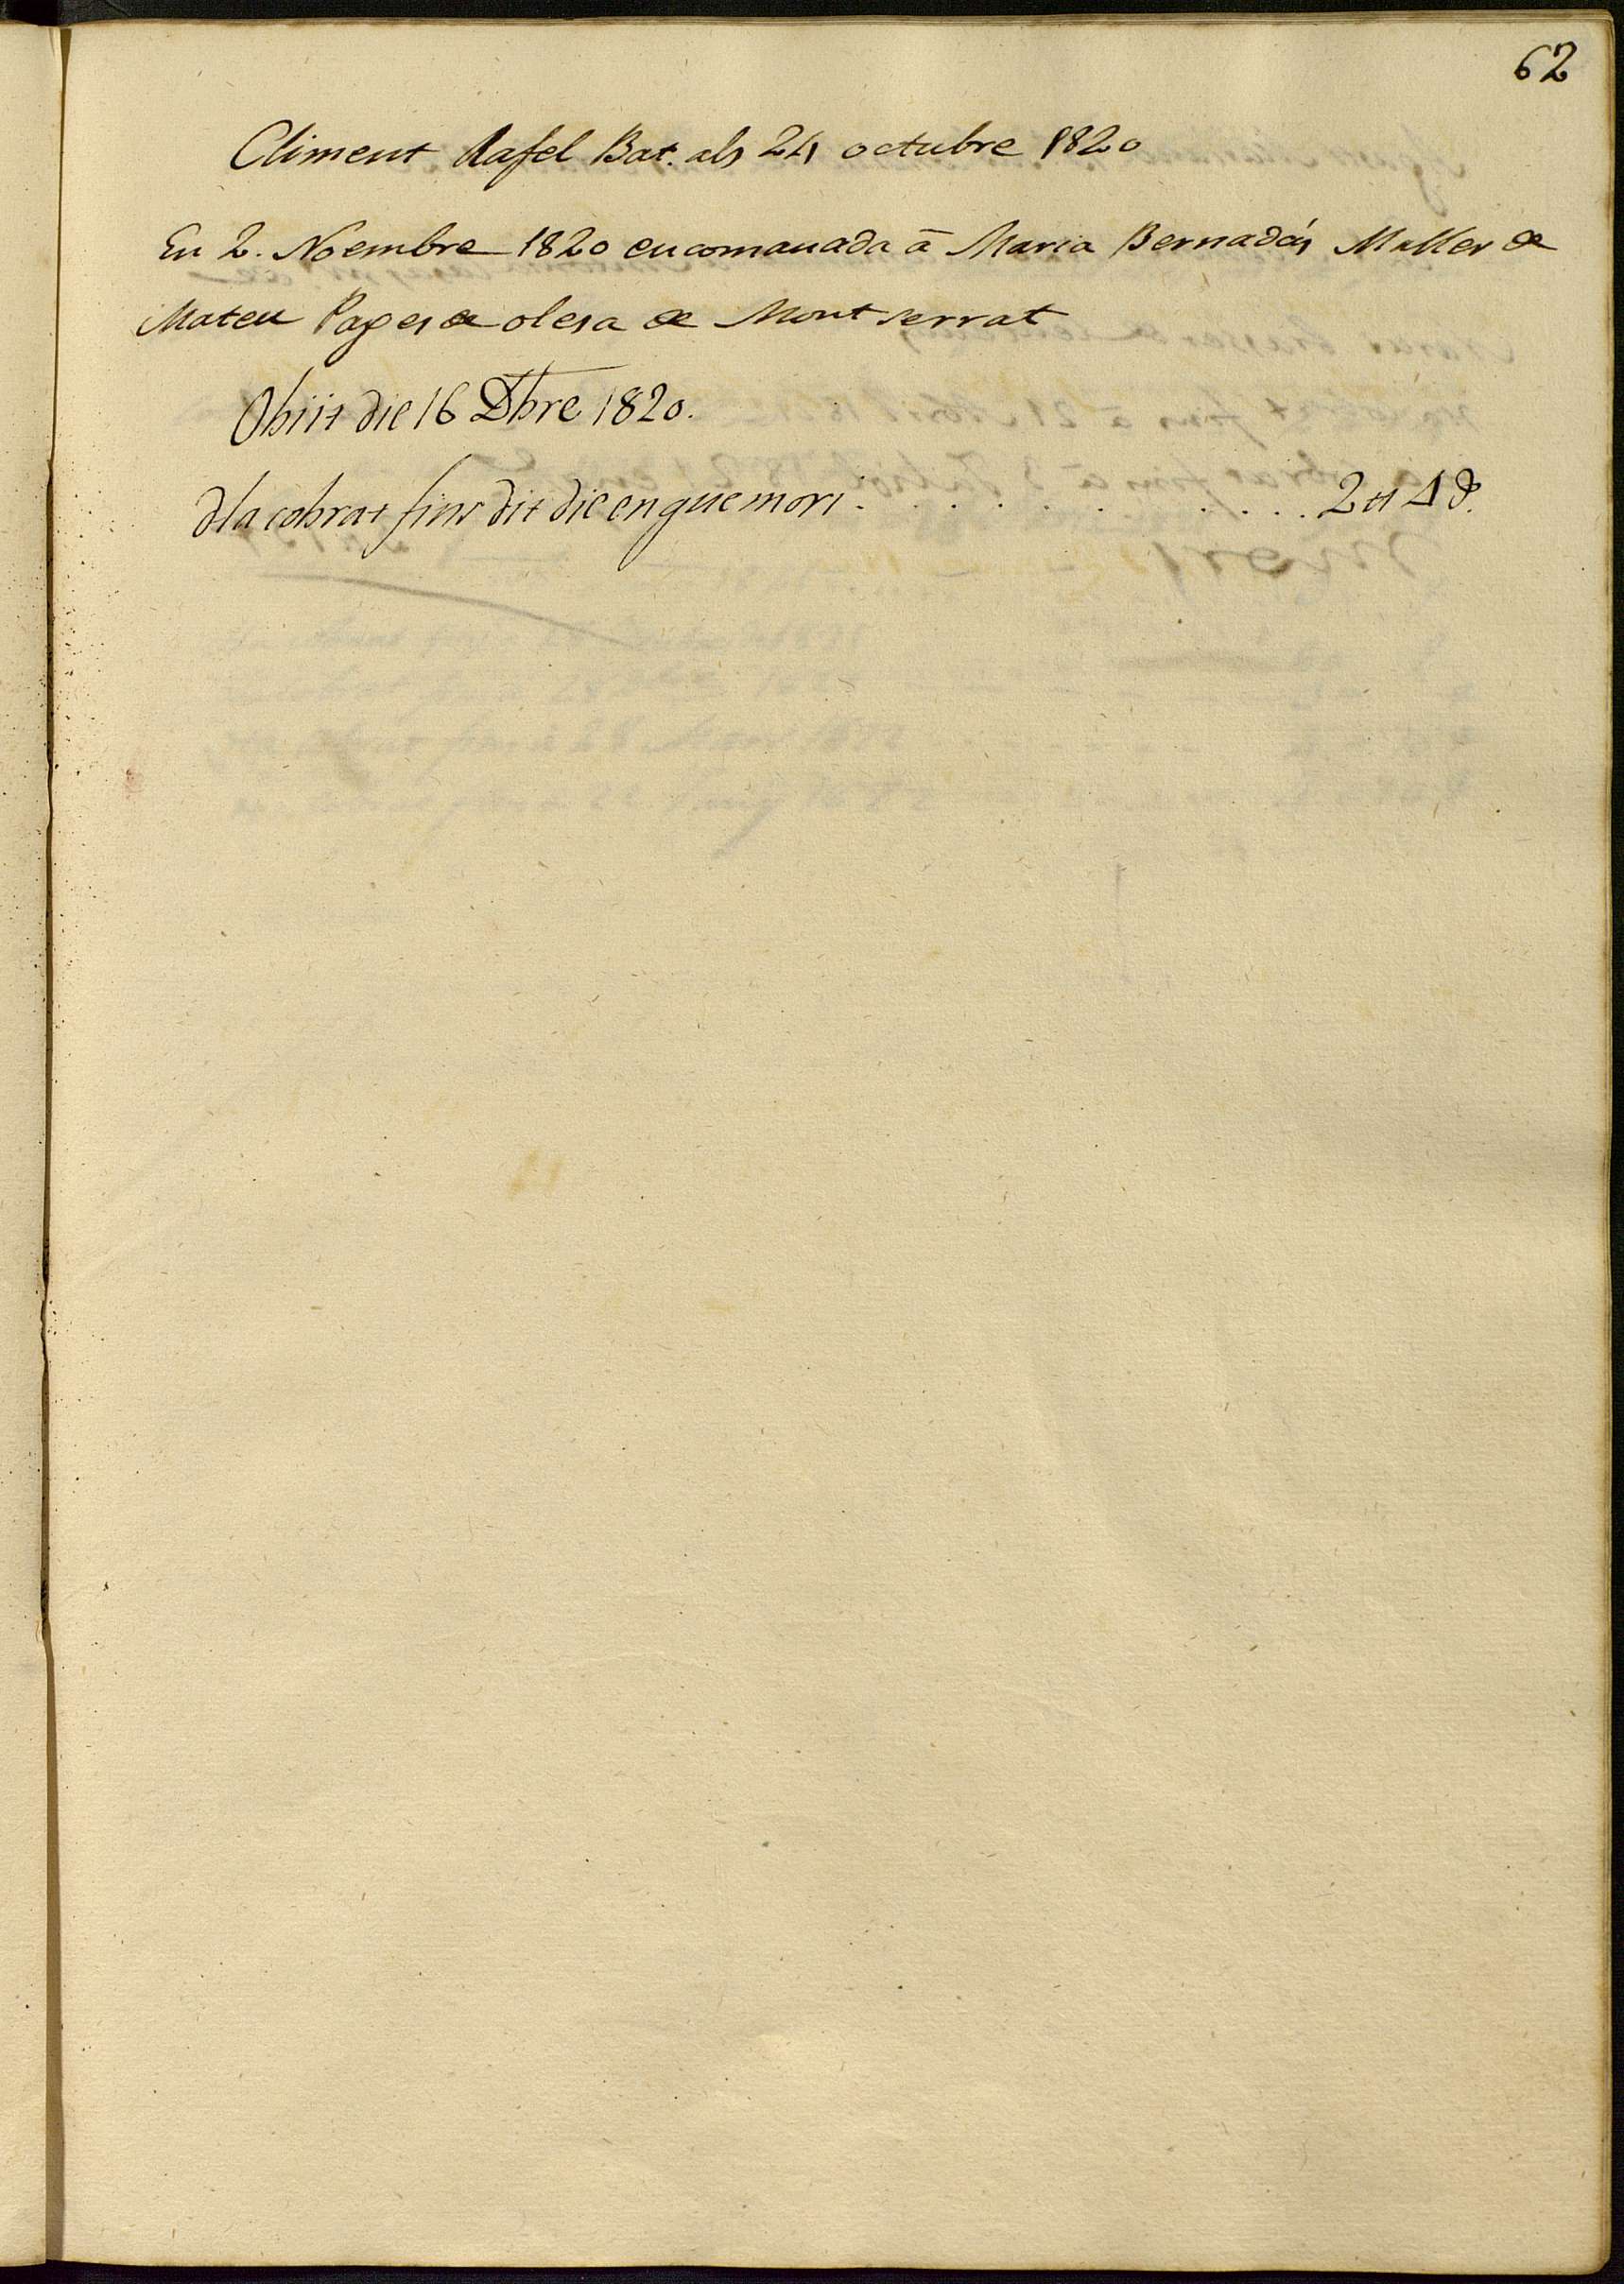 62
Climent Rafel Bat. als 24 octubre 1820
En 2. Noembre 1820 encomanada à Maria Bernadás Muller de
Mateu Pages de olesa de Montserrat
Obiit die 16 Dbre 1820.
Ha cobrat fins dit die en que morí . . . . . . . . . . 2 ₶ 4 ꝺ.